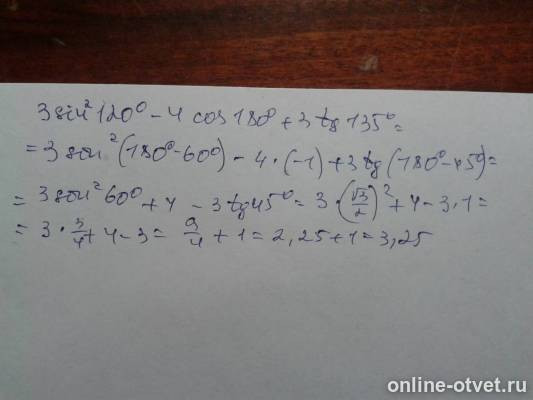 3 sin²120° - 4 cos 180° + 3 tg 135° =
= 3 sin²(180° - 60°) - 4 · (-1) + 3 tg (180° - 45°) =
= 3 sin²60° + 4 - 3 tg 45° = 3 · (√3/2)² + 4 - 3 · 1 =
= 3 · 3/4 + 4 - 3 = 9/4 + 1 = 2,25 + 1 = 3,25
online-otvet.ru